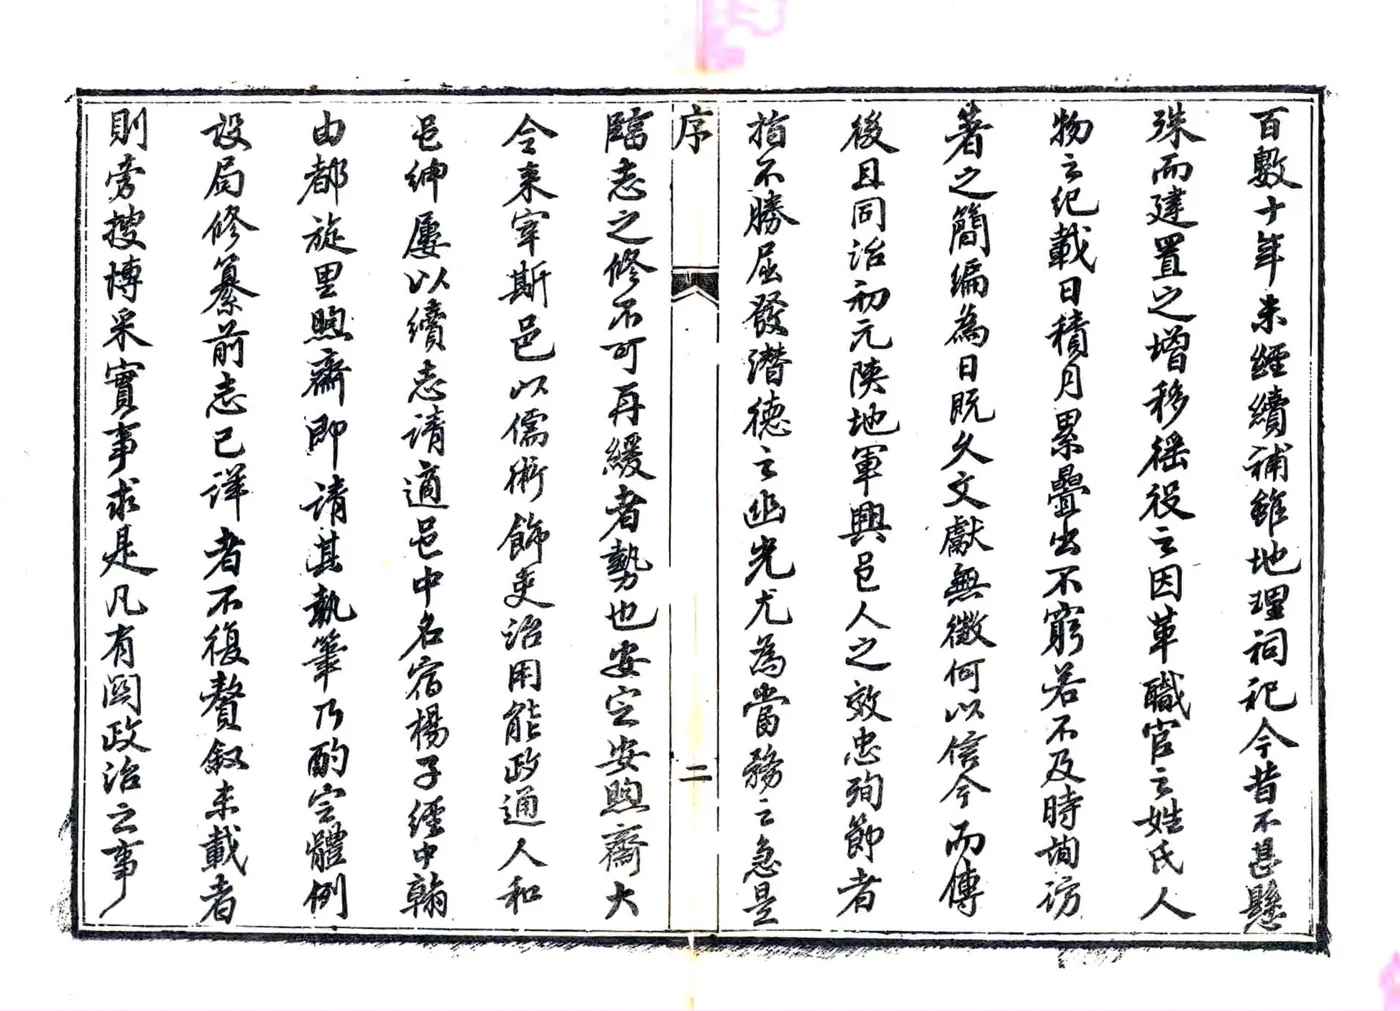 百數十年未經續補雖地理祠祀今昔不甚懸
殊而建置之增移徭役之因革職官之姓氏人
物之紀載日積月累疊出不窮若不及時詢訪
著之簡編為日既久文獻無徵何以信今而傳
後且同治初元陝地軍興邑人之效忠殉節者
指不勝屈發潛德之幽光尤為當務之急是
序
二
臨志之修不可再緩者勢也安定安煦齋大
令來宰斯邑以儒術飾吏治用能政通人和
邑紳屢以續志請適邑中名宿楊子經中翰
由都旋里煦齋即請其執筆乃酌定體例
設局修纂前志已詳者不復贅敘未載者
則旁搜博采實事求是凡有關政治之事